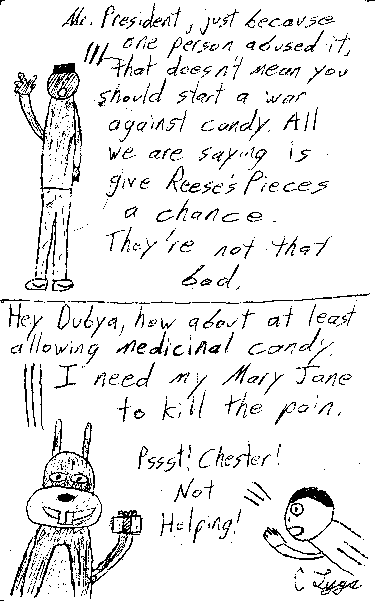 Mr. President, just because
one person abused it,
that doesn't mean you
should start a war
against candy. All
we are saying is
give Reese's Pieces
a chance.
They're not that
bad.
Hey Dubya, how about at least
allowing medicinal candy.
I need my Mary Jane
to kill the pain.
Pssst! Chester!
Not
Helping!